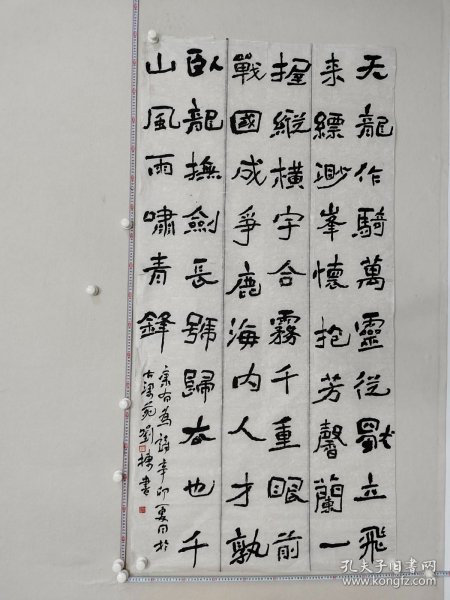 天龍作騎萬靈從獨立飛
来縹渺峯懷抱芳馨蘭一
握縱橫宇合霧千重眼前
戰國成爭鹿海内人才孰
臥龍撫劍長號歸去也千
山風雨嘯青鋒
康有為詩辛卯夏日於
古梁苑劉書
孔夫子旧书网
www.kongfz.com